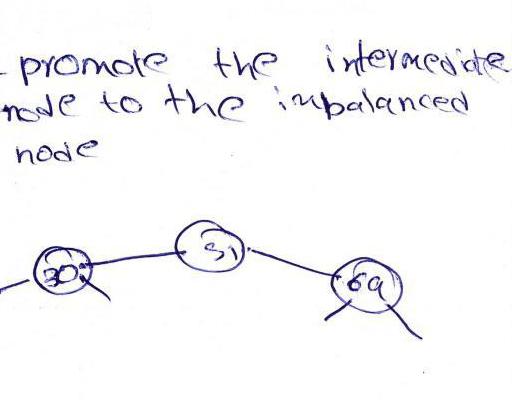 - promote the intermediate
node to the imbalanced
node
51
30
69